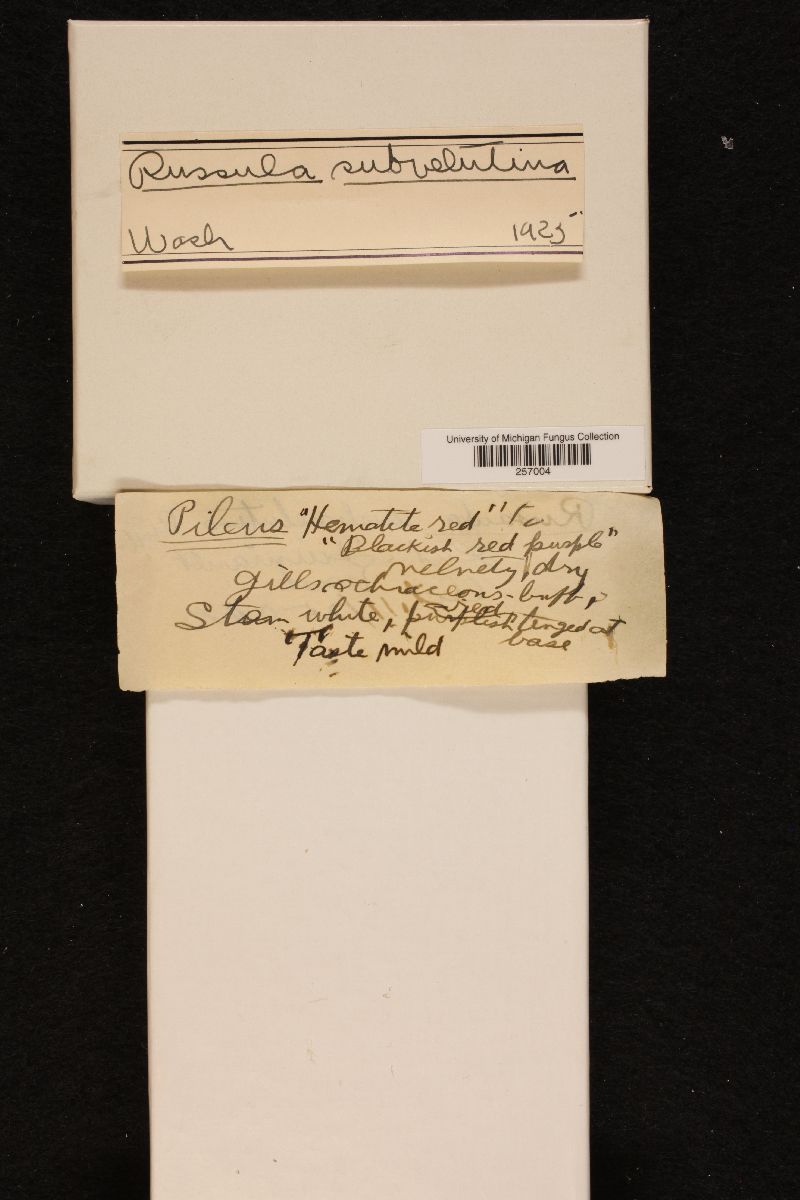 Russula subvelutina
Wash 1925
University of Michigan Fungus Collection
257004
Pileus "Hematite red" to
"Blackish red purple"
velvety, dry
Gills ochraceous-buff,
Stem white, purplish red tinged at
base
Taste mild